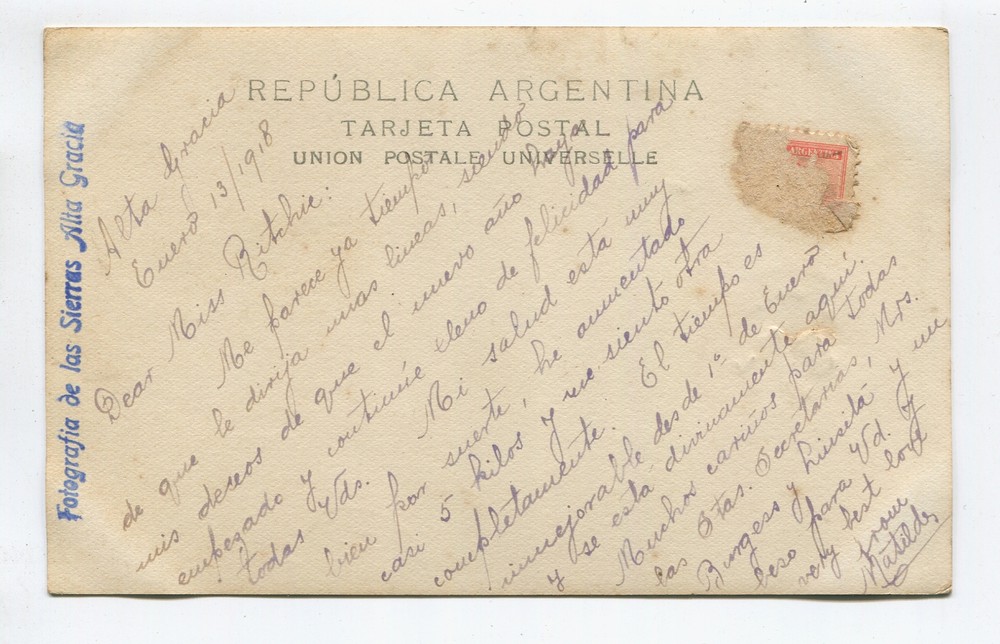 REPÚBLICA ARGENTINA
TARJETA POSTAL
UNION POSTALE UNIVERSELLE
ARGENTINA
Fotografia de las Sierras Alta Gracia
Alta Gracia
Enero 13/1918
Dear Miss Ritchie:
Me parece ya tiempo
de que le dirija unas lineas, siendo
mis deseos de que el nuevo año haya
empezado y continúe lleno de felicidad para
todas Vds. Mi salud esta muy
bien por suerte, he aumentado
casi 5 kilos y me siento otra
completamente. El tiempo es
inmejorable desde 1º de Enero
y se está divinamente aquí.
Muchos cariños para todas
las Stas. Secretarias, Mrs.
Burgess y Luisita y un
beso para Vd. y
very best love
from
Matilde